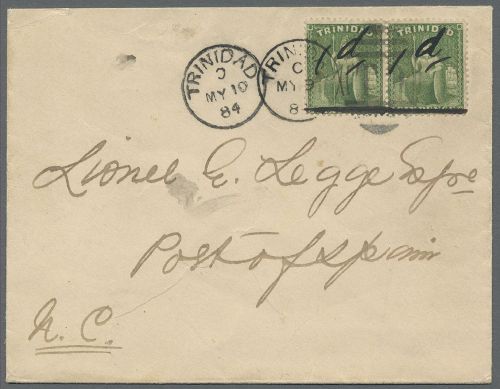 TRINIDAD TRINIDAD
1d 1d
TRINIDAD
C
MY 10
84
TRINID
C
MY 9
8
Lionel E. Legge Esqre
Port of Spain
N.C.